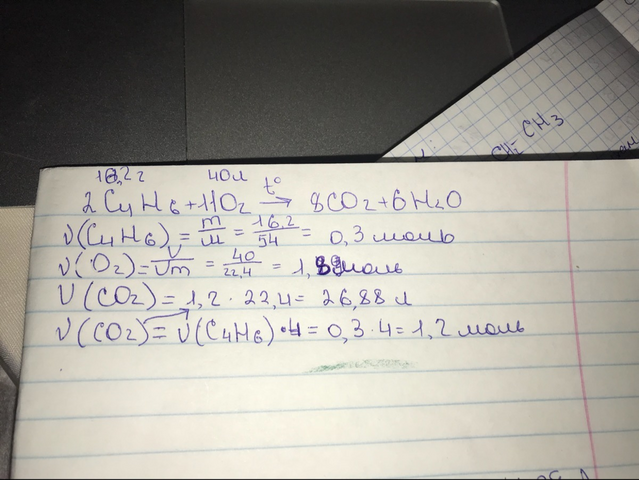 CH₂ CH₃
16,2г 40л
2C₄H₆ + 11O₂ t° → 8CO₂ + 6H₂O
ν(C₄H₆) = m/M = 16,2/54 = 0,3 моль
ν(O₂) = V/Vm = 40/22,4 = 1, моль
V(CO₂) = 1,2 · 22,4 = 26,88 л
ν(CO₂) = ν(C₄H₆) · 4 = 0,3 · 4 = 1,2 моль